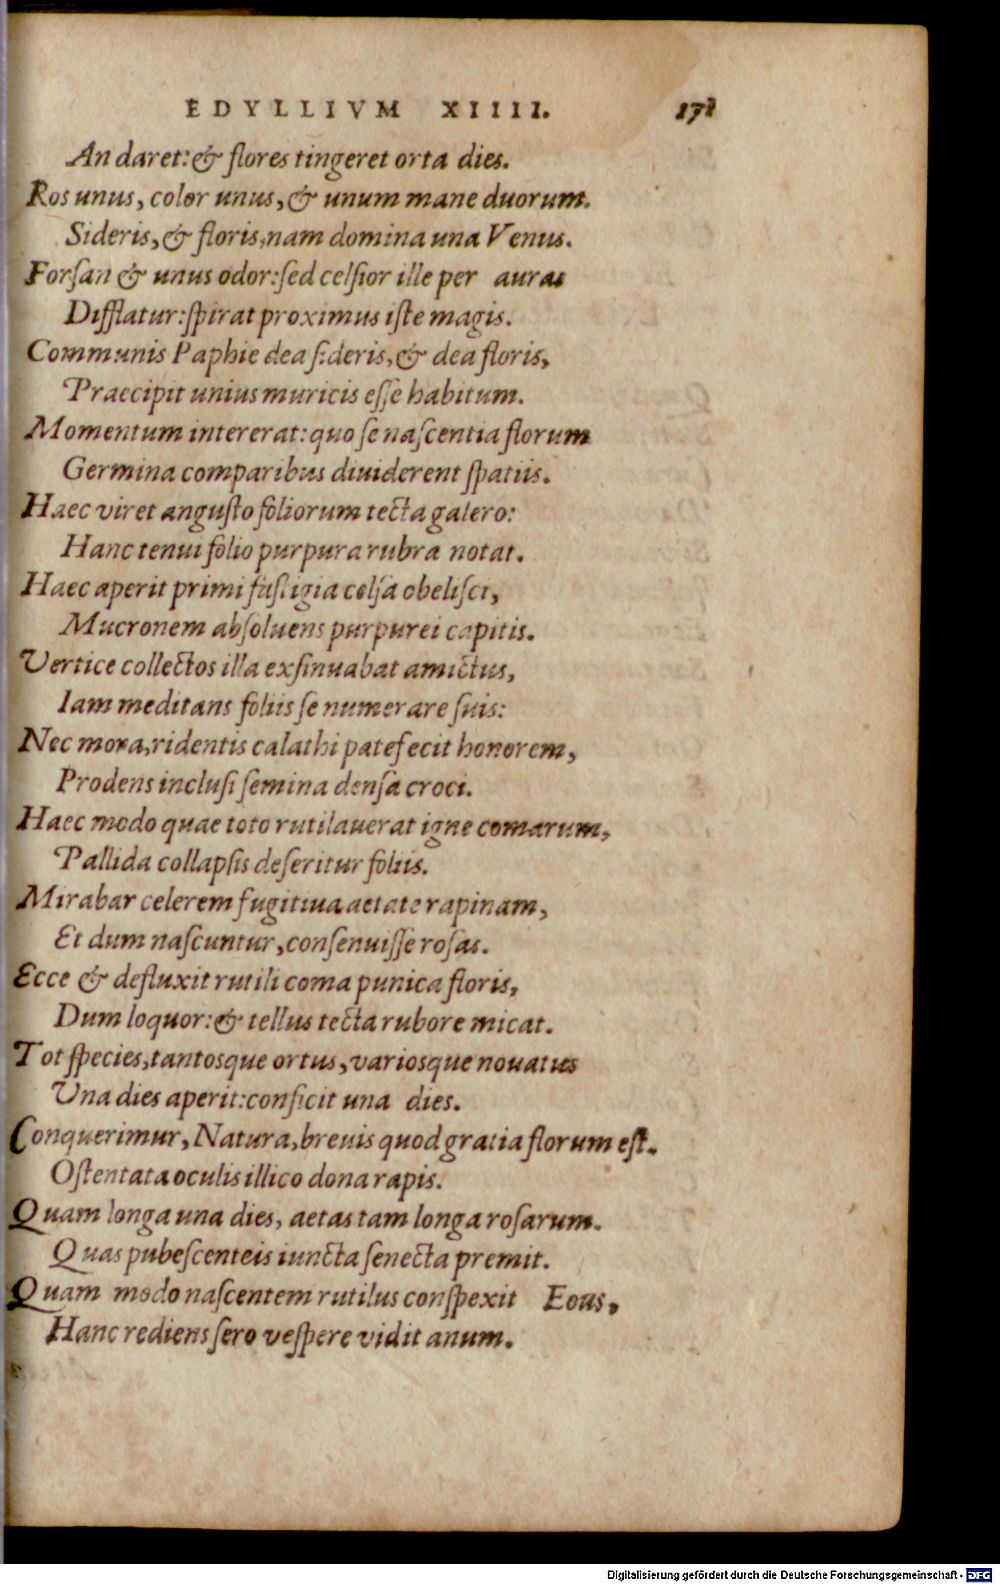 EDYLLIVM XIIII. 171
An daret: & flores tingeret orta dies.
Ros unus, color unus, & unum mane duorum.
Sideris, & floris, nam domina una Venus.
Forsan & unus odor: sed celsior ille per auras
Difflatur: spirat proximus iste magis.
Communis Paphie dea sideris, & dea floris,
Praecipit unius muricis esse habitum.
Momentum intererat: quo se nascentia florum
Germina comparibus diuiderent spatiis.
Haec viret angusto foliorum tecta galero:
Hanc tenui folio purpura rubra notat.
Haec aperit primi fastigia celsa obelisci,
Mucronem absoluens purpurei capitis.
Vertice collectos illa exsinuabat amictus,
Iam meditans foliis se numerare suis:
Nec mora, ridentis calathi patefecit honorem,
Prodens inclusi semina densa croci.
Haec modo quae toto rutilauerat igne comarum,
Pallida collapsis deseritur foliis.
Mirabar celerem fugitiua aetate rapinam,
Et dum nascuntur, consenuisse rosas.
Ecce & defluxit rutili coma punica floris,
Dum loquor: & tellus tecta rubore micat.
Tot species, tantosque ortus, variosque nouatus
Una dies aperit: conficit una dies.
Conquerimur, Natura, breuis quod gratia florum est.
Ostentata oculis illico dona rapis.
Quam longa una dies, aetas tam longa rosarum.
Quas pubescenteis iuncta senecta premit.
Quam modo nascentem rutilus conspexit Eous,
Hanc rediens sero vespere vidit anum.
Digitalisierung gefördert durch die Deutsche Forschungsgemeinschaft - DFG